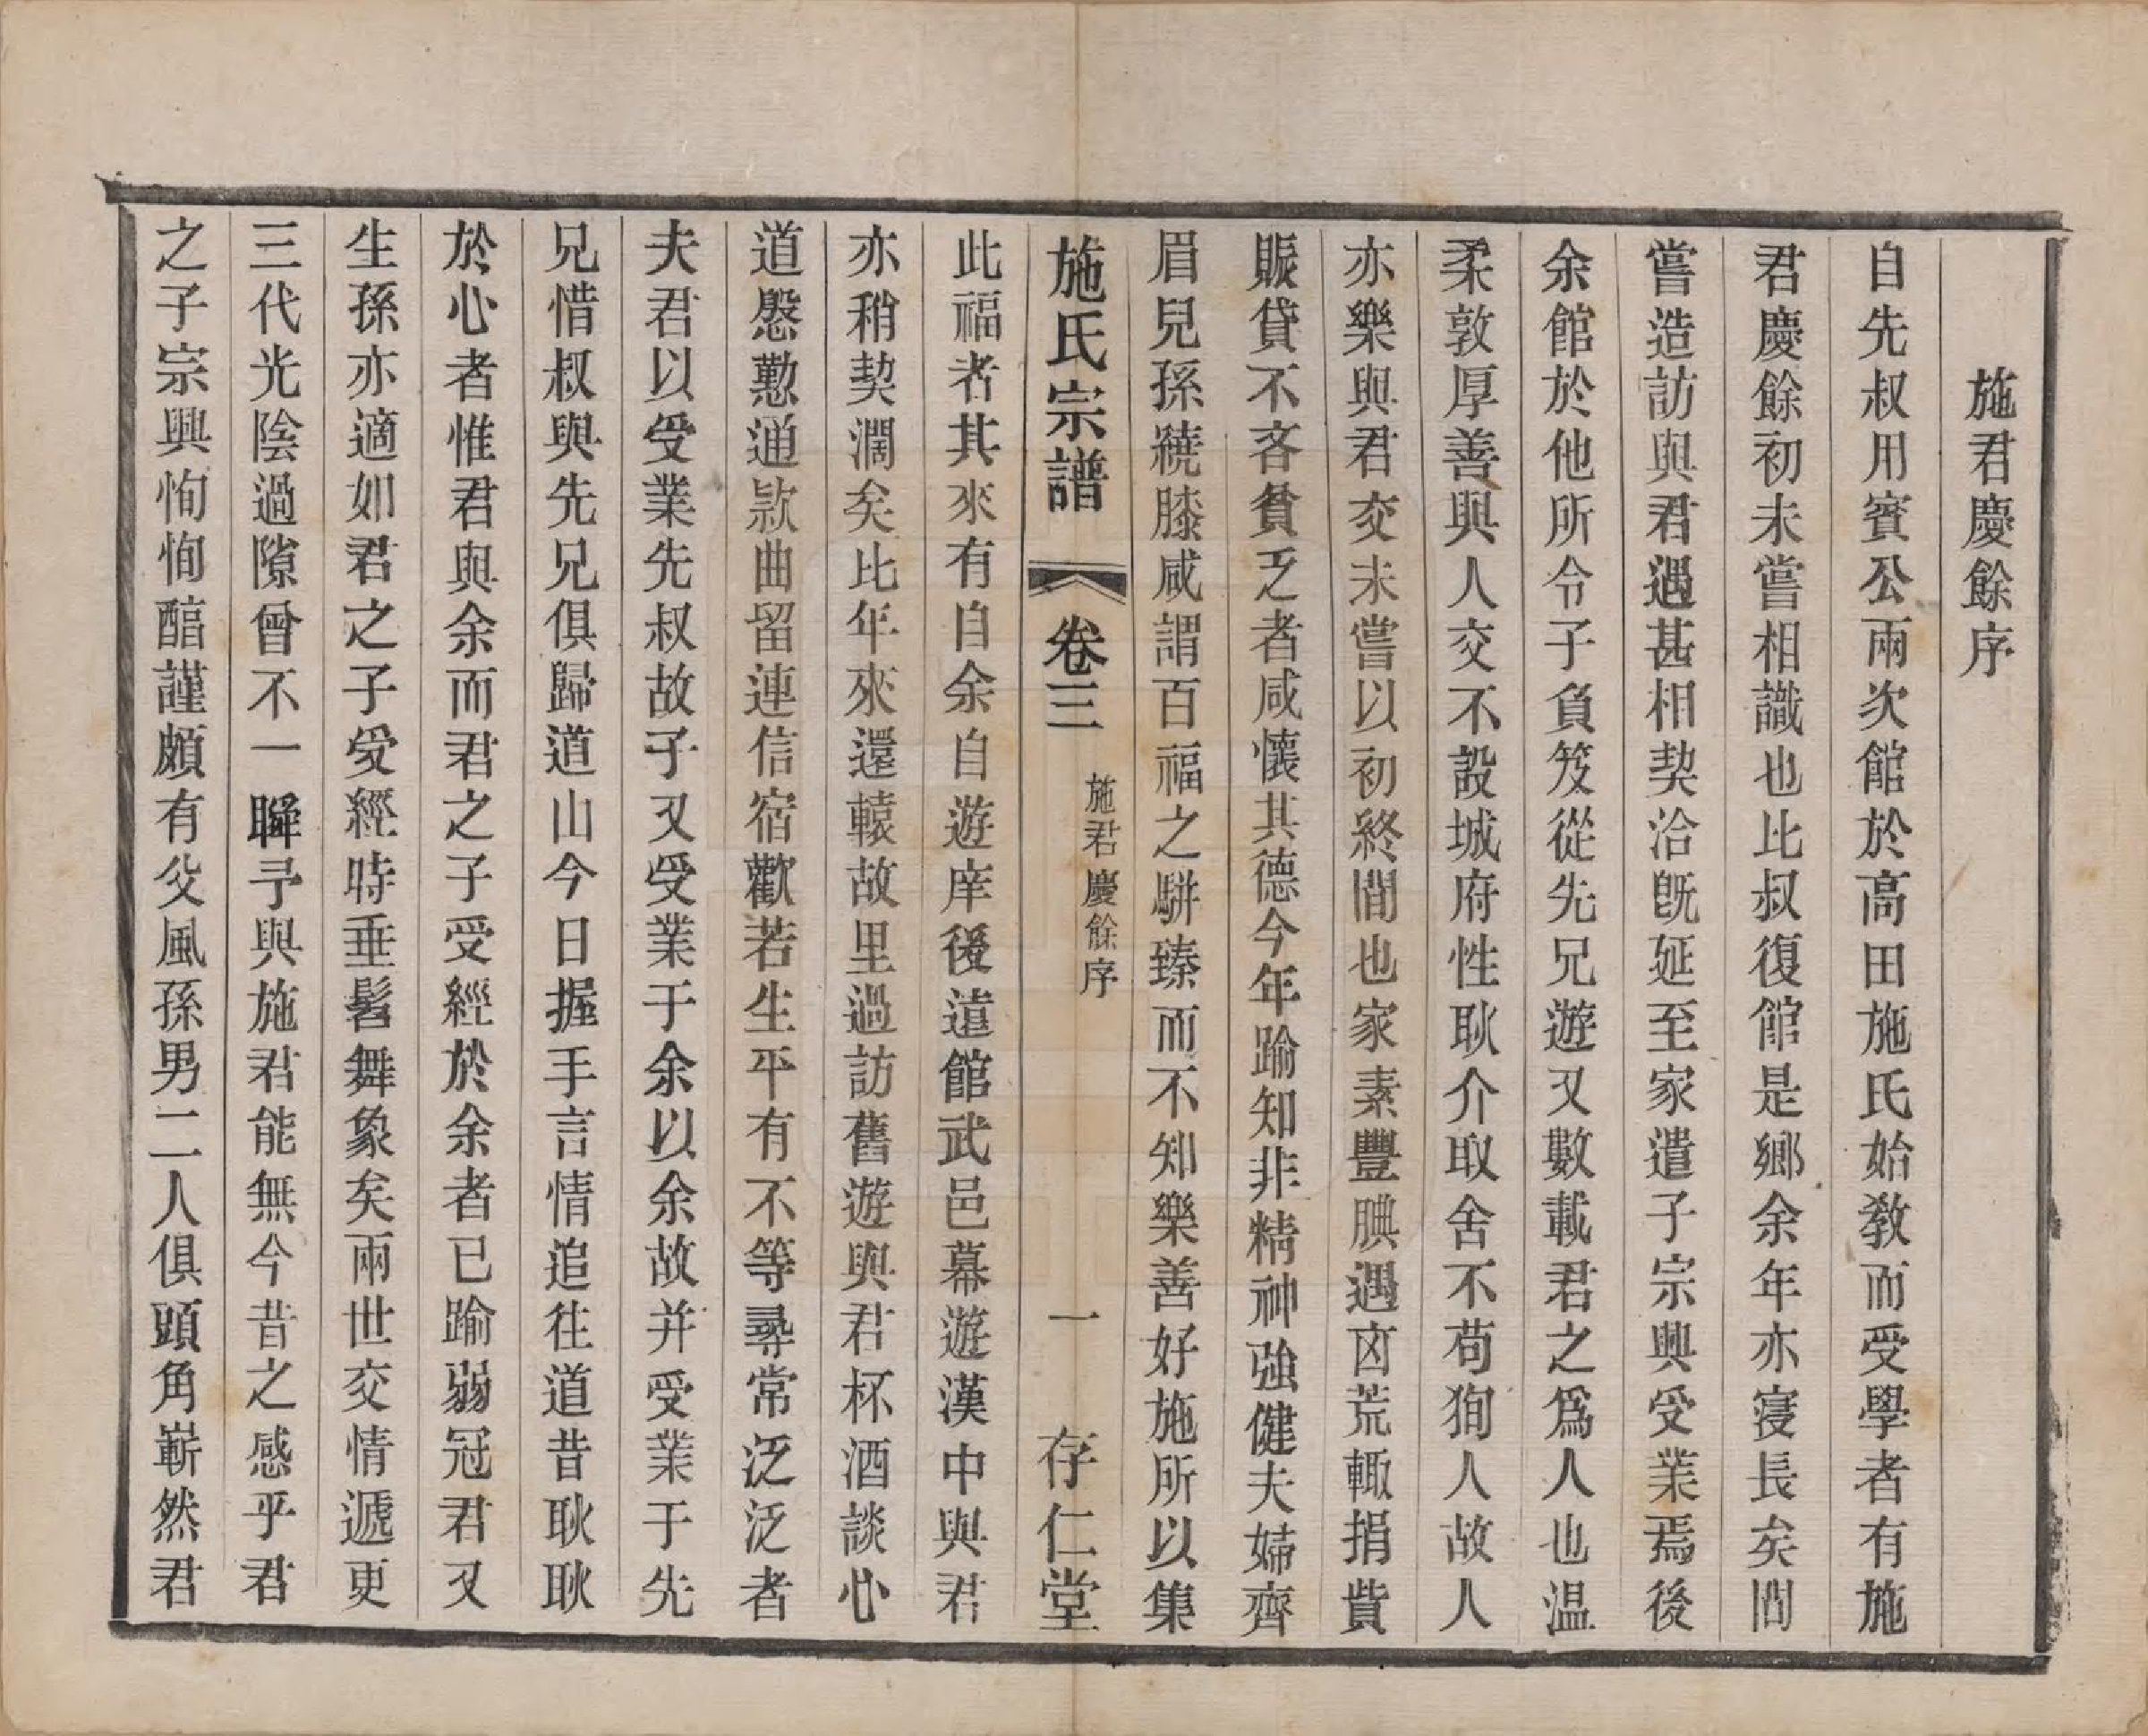 施君慶餘序
自先叔用賓公兩次館於高田施氏始教而受學者有施
君慶餘初未嘗相識也比叔復館是鄉余年亦寖長矣間
嘗造訪與君遇甚相契洽旣延至家遣子宗興受業焉後
余館於他所令子負笈從先兄遊又數載君之爲人也温
柔敦厚善與人交不設城府性耿介取舍不苟狥人故人
亦樂與君交未嘗以初終間也家素豐腆遇㐫荒輙捐貲
賑貸不吝貧乏者咸懷其德今年踰知非精神強健夫婦齊
眉兒孫繞膝咸謂百福之駢臻而不知樂善好施所以集
施氏宗譜 卷三 施君慶餘序 一 存仁堂
此福者其來有自余自遊庠後遠館武邑幕遊漢中與君
亦稍契濶矣比年來還轅故里過訪舊遊與君杯酒談心
道慇懃通欵曲留連信宿歡若生平有不等尋常泛泛者
夫君以受業先叔故子又受業于余以余故并受業于先
兄惜叔與先兄俱歸道山今日握手言情追往道昔耿耿
於心者惟君與余而君之子受經於余者已踰弱冠君又
生孫亦適如君之子受經時垂髫舞象矣兩世交情遞更
三代光陰過隙曾不一瞬予與施君能無今昔之感乎君
之子宗興恂恂醕謹頗有父風孫男二人俱頭角嶄然君